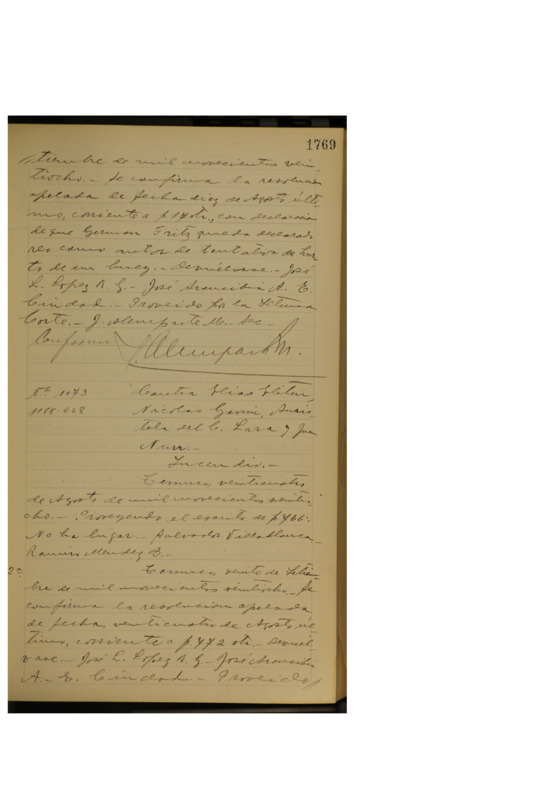 1769
//tiembre de mil novecientos vein-
tiocho.- Se confirma la resolucion
apelada de fecha diez de Agosto últi
mo, corriente a f. 14 vta, con declaracion
de que German Fritz queda
reo como autor de tentativa de hur
to de un buey.- Devuélvase.- José
L. Lopez R. G.- José Arancibia A. E.
Ciudad.- Proveido por la Iltma
Corte.- J. Alemparte M.- Sec.-
Conforme
J. Alemparte M.
N° 1073 Contra Elias
1188-928 Nicolas Garin,
del C. Lara y Juan
Nurr.-
Incendio.-
Temuco, veinticuatro
de Agosto de mil novecientos veintio
cho.- Proveyendo el escrito de f. 466:
No ha lugar.- Salvador Villablanca.-
Ramiro Mendez B.-
2ª Temuco, veinte de Setiem-
bre de mil novecientos veintiocho.- Se
confirma la resolucion apelada
de fecha, veinticuatro de Agosto úl
timo, corriente a f. 472 vta.- Devuel
vase.- José L. Lopez R. G.- José Arancibia
A.- E. Ciudad.- Proveido//